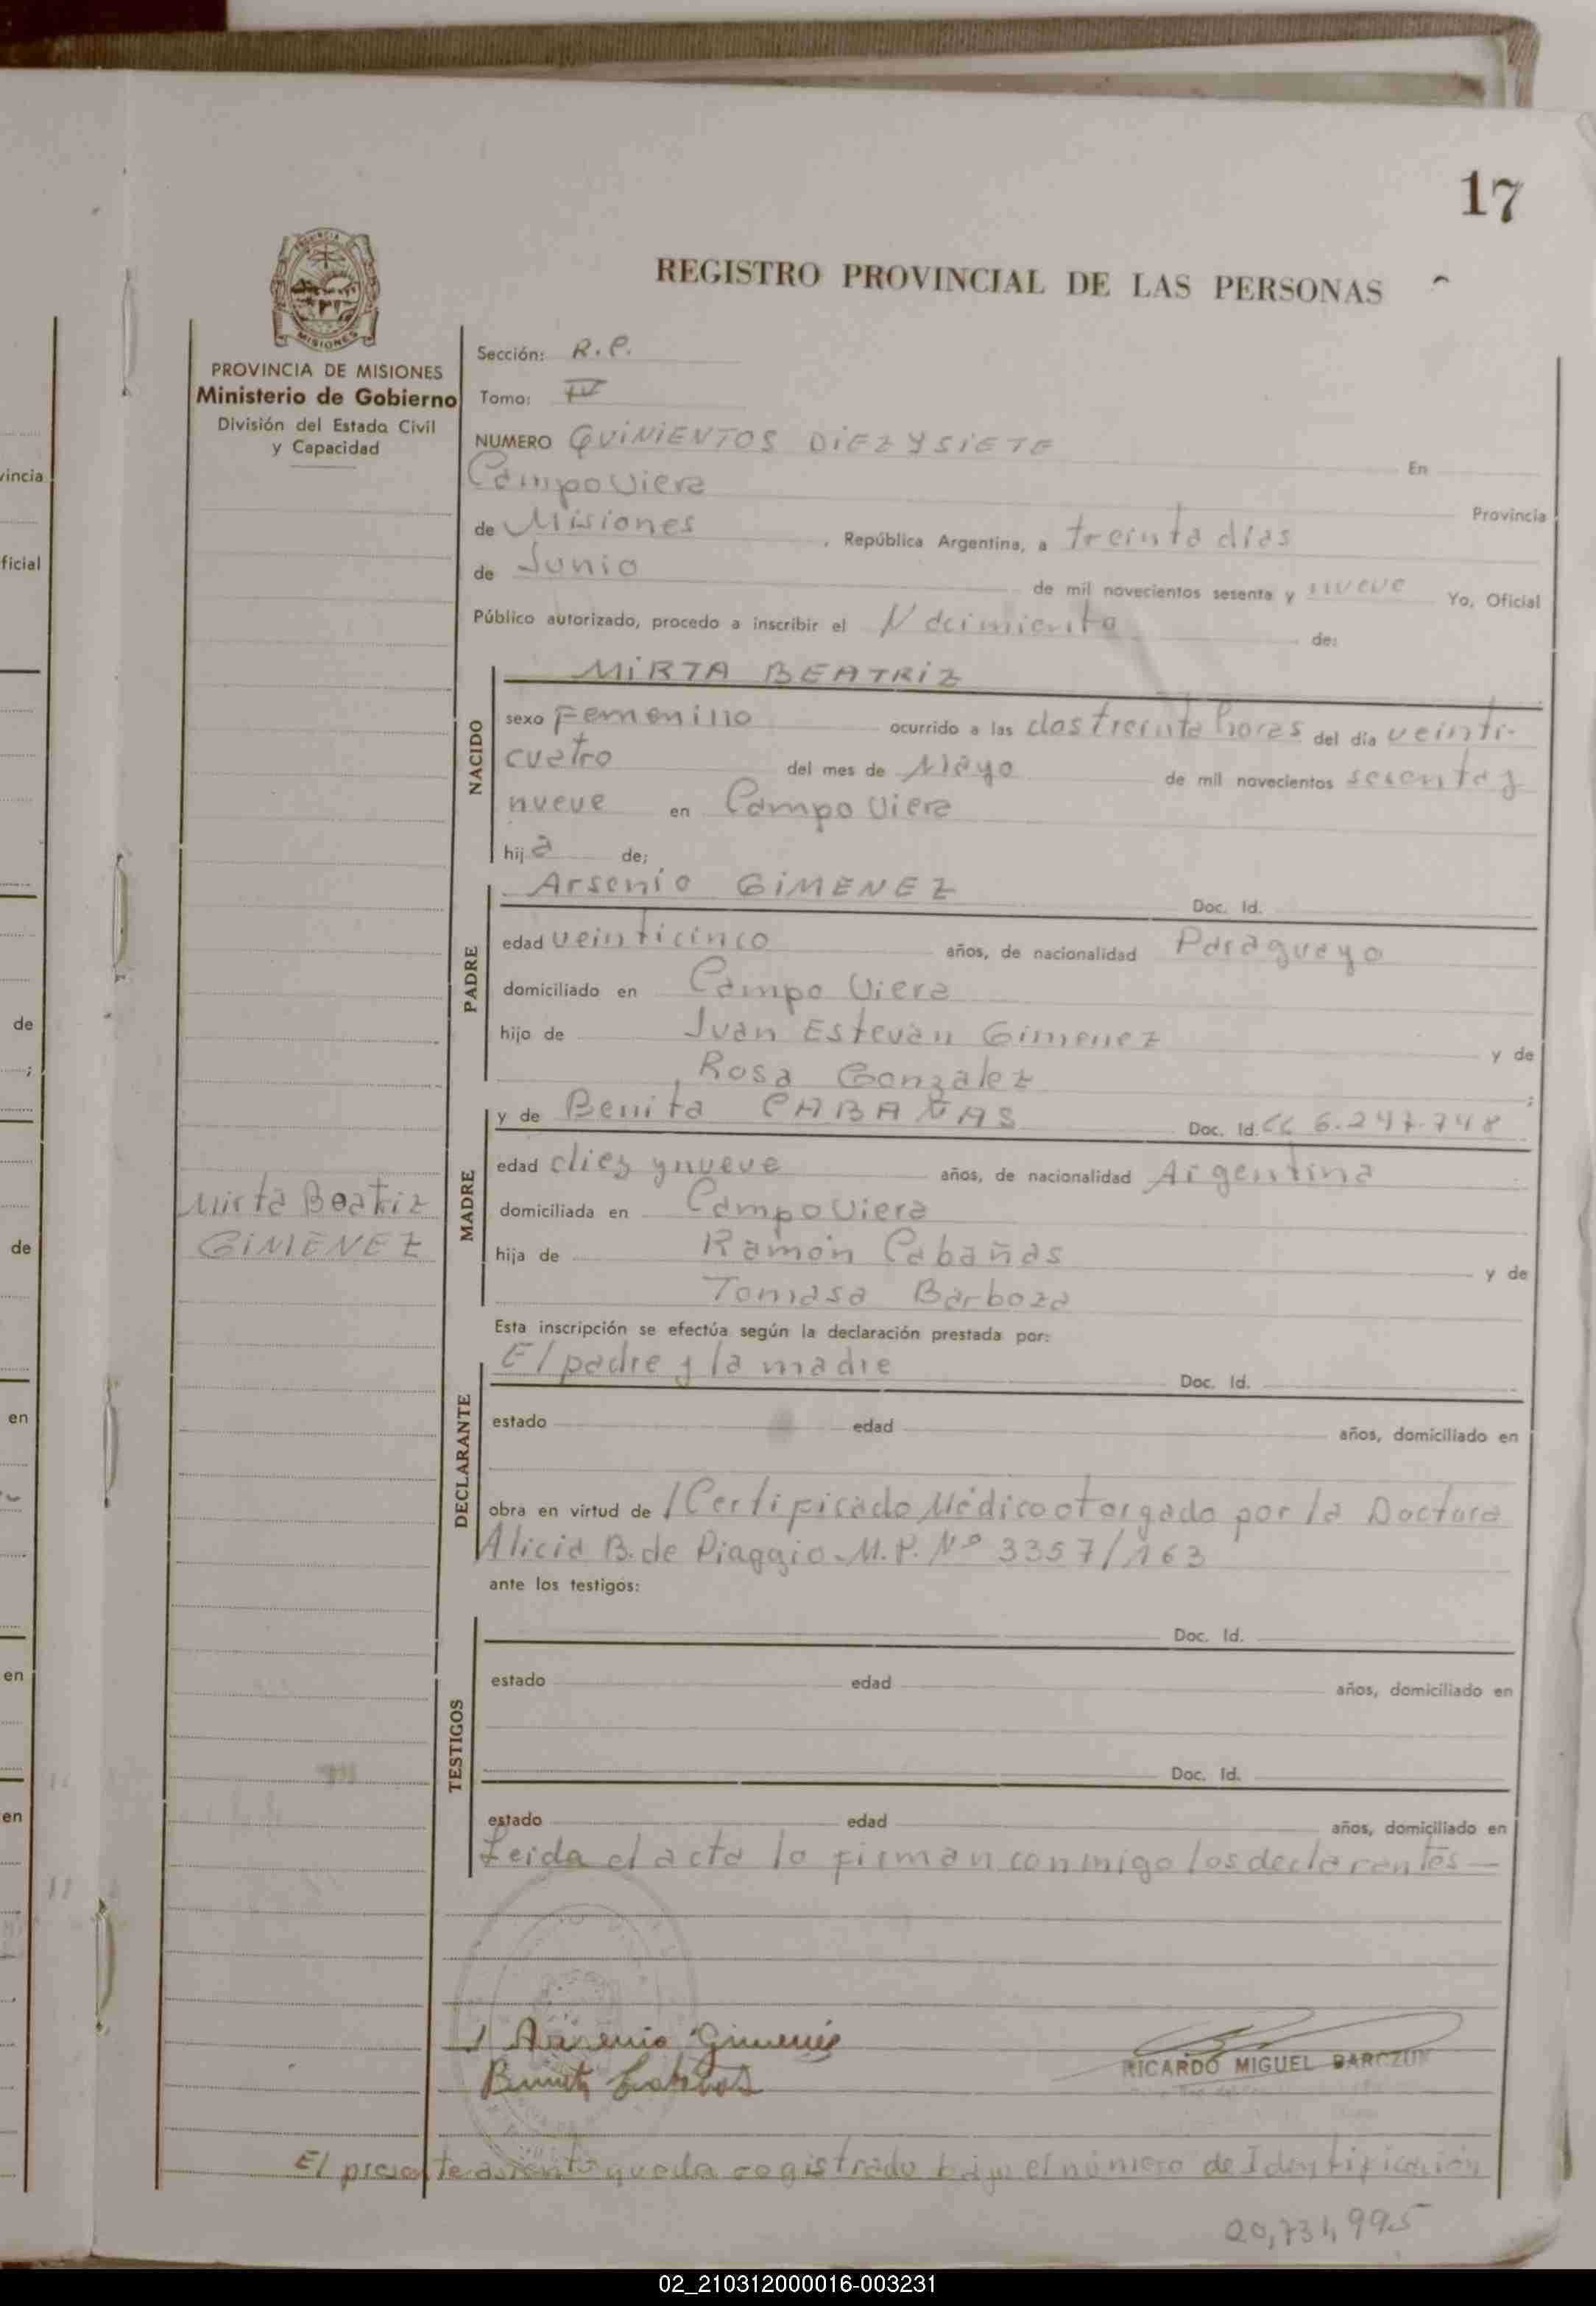 17
REGISTRO PROVINCIAL DE LAS PERSONAS
PROVINCIA DE MISIONES
Ministerio de Gobierno
División del Estado Civil
y Capacidad
Sección: R.P.
Tomo: IV
NUMERO QUINIENTOS DIEZ Y SIETE En
Campo Viera Provincia
de Misiones, República Argentina, a treinta días
de Junio de mil novecientos sesenta y nueve Yo, Oficial
Público autorizado, procedo a inscribir el Nacimiento de:
NACIDO
MIRTA BEATRIZ
sexo Femenino ocurrido a las dos treinta horas del día veinti-
cuatro del mes de Mayo de mil novecientos sesenta y
nueve en Campo Viera
hija de;
PADRE
Arsenio GIMENEZ Doc. Id.
edad veinticinco años, de nacionalidad Paraguayo
domiciliado en Campo Viera
hijo de Juan Estevan Gimenez y de
Rosa Gonzalez ;
MADRE
y de Benita CABAÑAS Doc. Id. CC 6.247.748
edad diez y nueve años, de nacionalidad Argentina
domiciliada en Campo Viera
hija de Ramón Cabañas y de
Tomasa Barboza
Mirta Beatriz
GIMENEZ
Esta inscripción se efectúa según la declaración prestada por:
DECLARANTE
El padre y la madre Doc. Id.
estado edad años, domiciliado en
obra en virtud de / Certificado Médico otorgado por la Doctora
Alicia B. de Piaggio M.P. Nº 3357/163
ante los testigos:
TESTIGOS
Doc. Id.
estado edad años, domiciliado en
Doc. Id.
estado edad años, domiciliado en
Leida el acta lo firman conmigo los declarantes—
Arsenio Gimenés
RICARDO MIGUEL BARCZUK
El presente asiento queda registrado bajo el número de Identificación
20,731,995
vincia
ficial
de
;
de
en
en
en
02_210312000016-003231